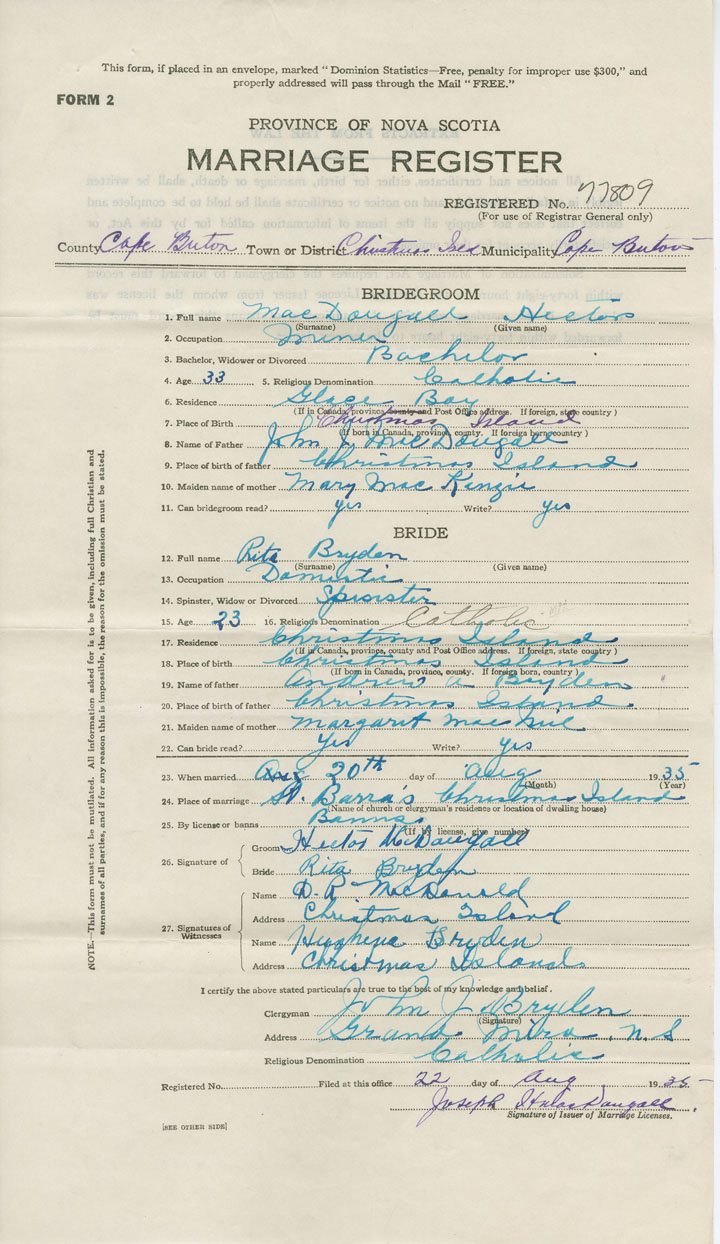 This form, if placed in an envelope, marked "Dominion Statistics—Free, penalty for improper use $300," and
properly addressed will pass through the Mail "FREE."
FORM 2
PROVINCE OF NOVA SCOTIA
MARRIAGE REGISTER
REGISTERED No. 77809
(For use of Registrar General only)
County Cape Breton Town or District Christmas Isld Municipality Cape Breton
BRIDEGROOM
1. Full name MacDougall Hector
(Surname) (Given name)
2. Occupation Miner
3. Bachelor, Widower or Divorced Bachelor
4. Age 33 5. Religious Denomination Catholic
6. Residence Glace Bay
(If in Canada, province, county and Post Office address. If foreign, state country)
7. Place of Birth Christmas Island
(If born in Canada, province, county. If foreign born, country)
8. Name of Father John J. MacDougall
9. Place of birth of father Christmas Island
10. Maiden name of mother Mary MacKinzie
11. Can bridegroom read? yes Write? yes
BRIDE
12. Full name Rita Bryden
(Surname) (Given name)
13. Occupation Domestic
14. Spinster, Widow or Divorced Spinster
15. Age 23 16. Religious Denomination Catholic
17. Residence Christmas Island
(If in Canada, province, county and Post Office address. If foreign, state country)
18. Place of birth Christmas Island
(If born in Canada, province, county. If foreign born, country)
19. Name of father Andrew A Bryden
20. Place of birth of father Christmas Island
21. Maiden name of mother Margaret MacNeil
22. Can bride read? Yes Write? yes
23. When married 20th day of Aug 1935
(Month) (Year)
24. Place of marriage St. Barra's Christmas Island
(Name of church or clergyman's residence or location of dwelling house)
25. By license or banns Banns
(If by license, give number)
26. Signature of
Groom Hector McDougall
Bride Rita Bryden
27. Signatures of Witnesses
Name D. R. MacDonald
Address Christmas Island
Name Hughena Bryden
Address Christmas Island
I certify the above stated particulars are true to the best of my knowledge and belief.
Clergyman John J. Bryden
(Signature)
Address Grand Mira. N.S
Religious Denomination Catholic
Registered No. Filed at this office 22 day of Aug 1935
Joseph MacDougall
Signature of Issuer of Marriage Licenses.
[SEE OTHER SIDE]
NOTE.—This form must not be mutilated. All information asked for is to be given, including full Christian and
surnames of all parties, and if for any reason this is impossible, the reason for the omission must be stated.